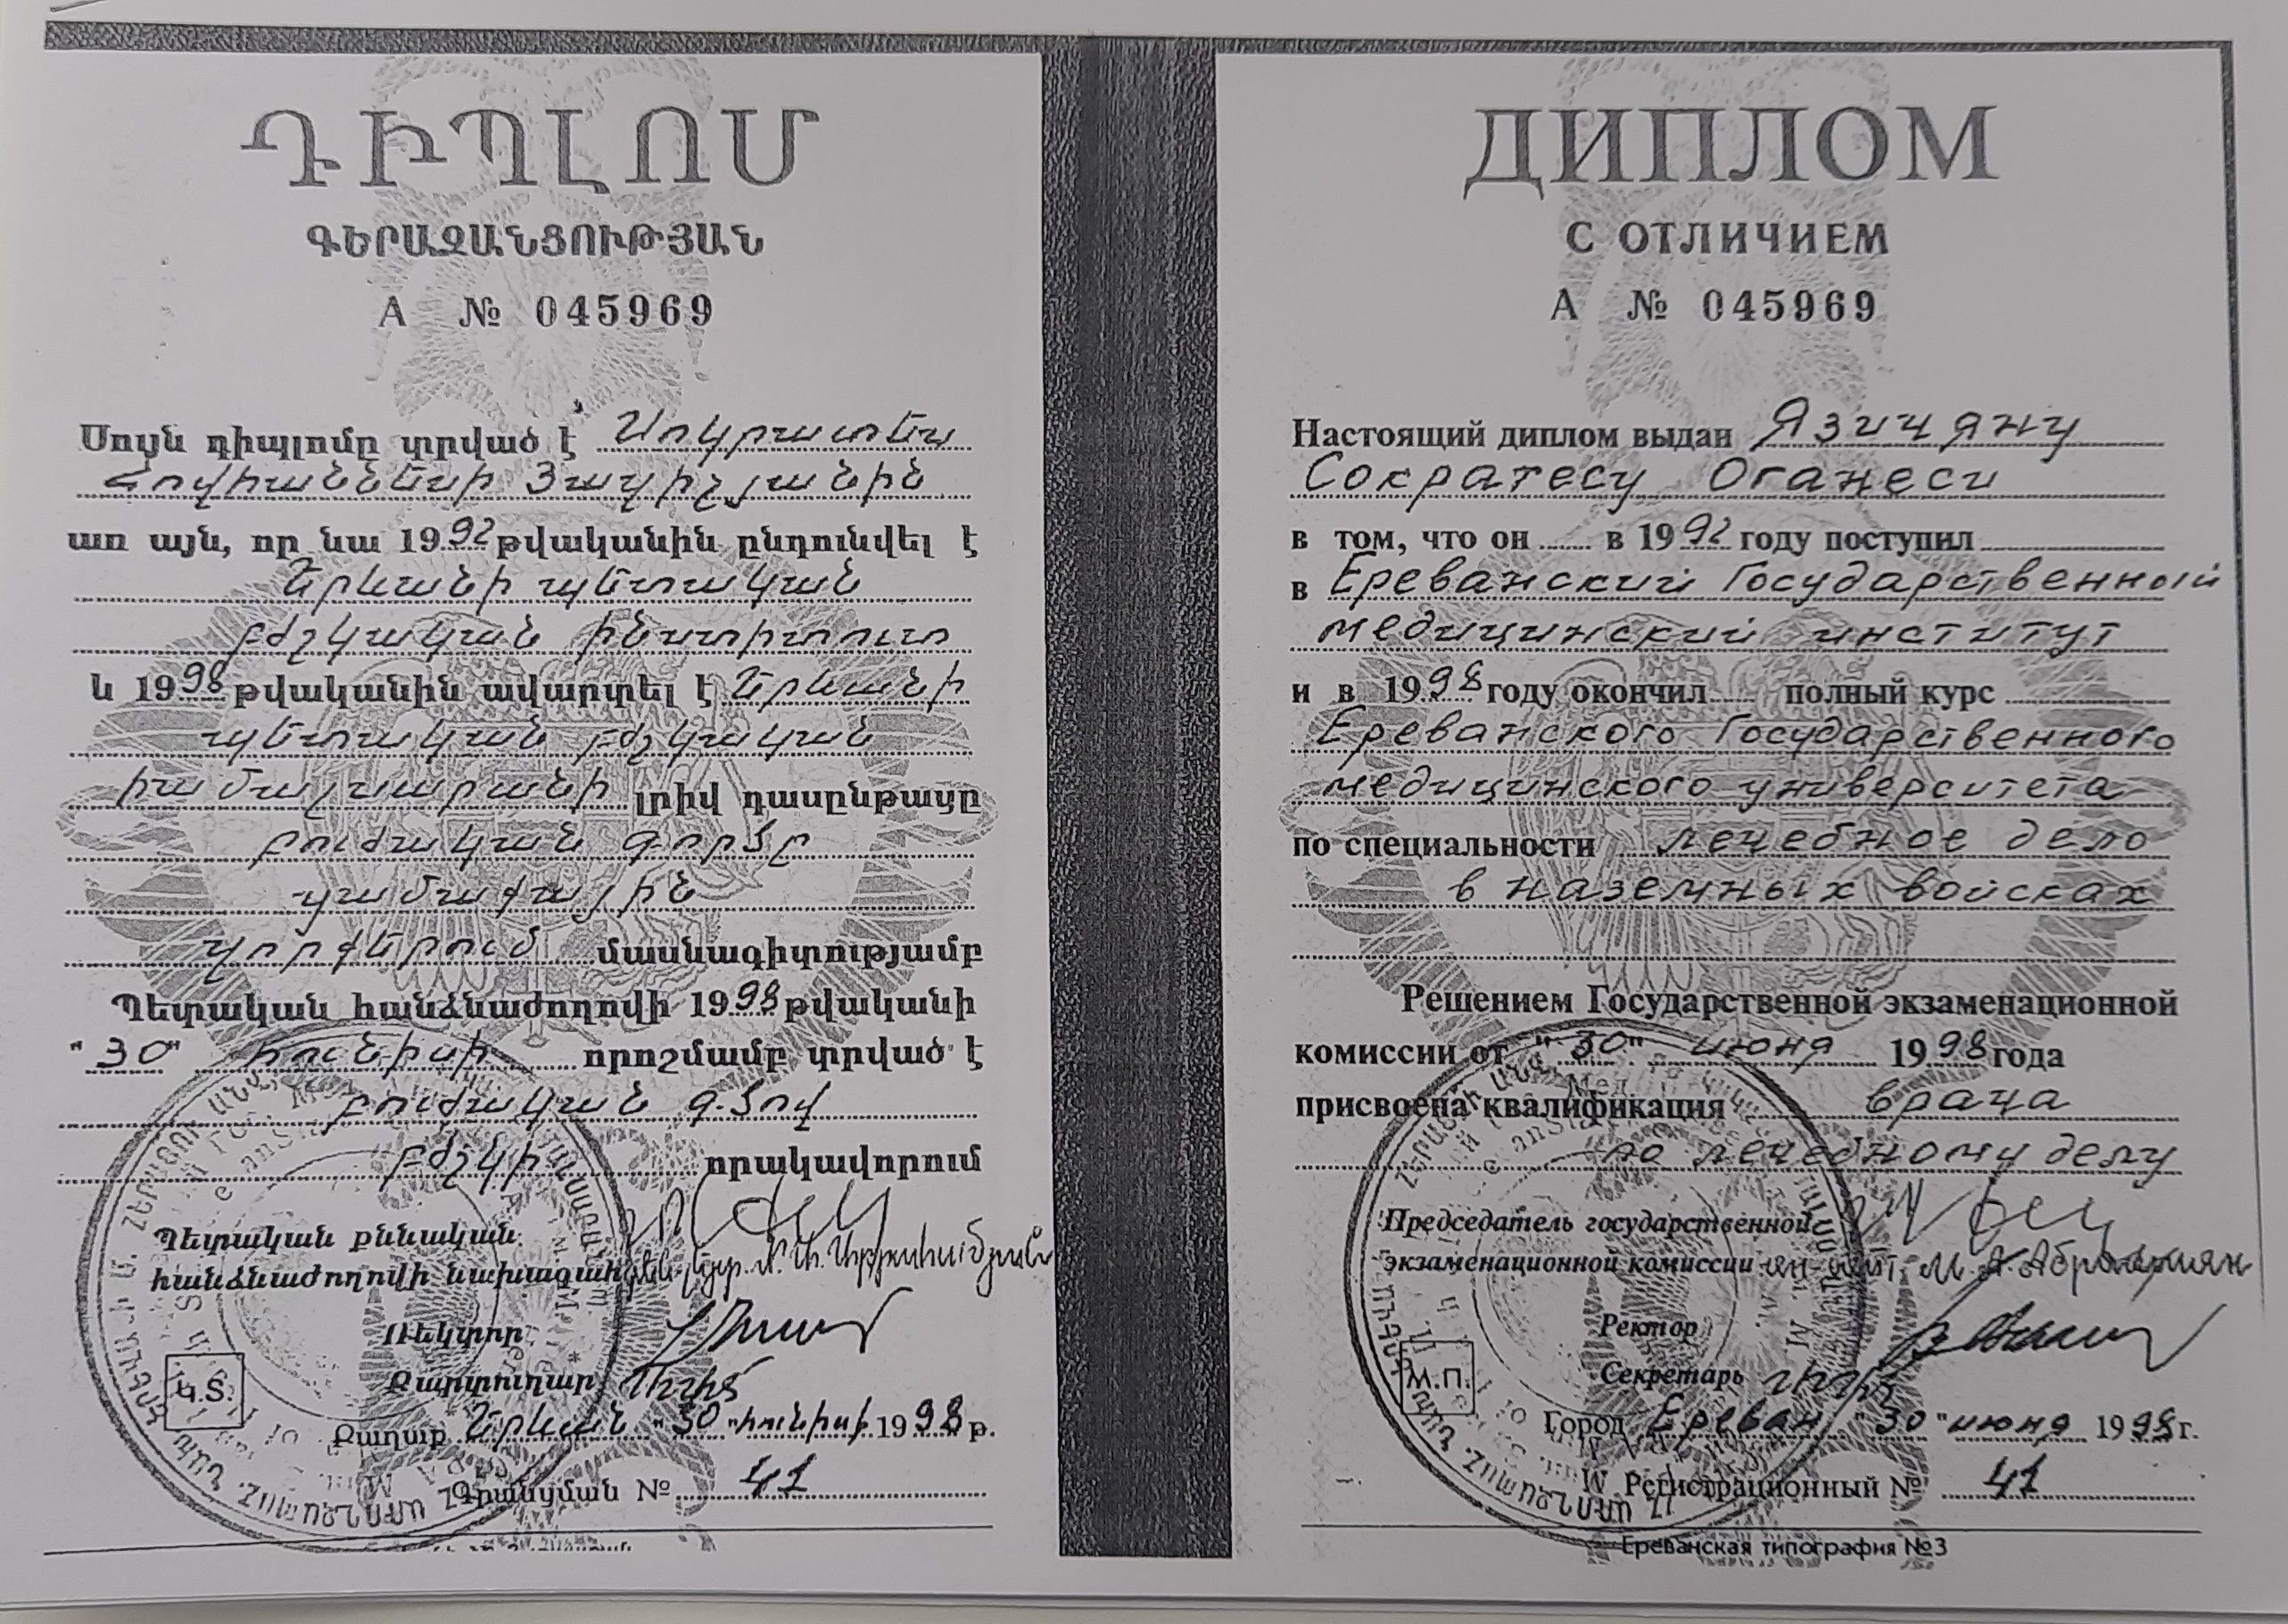 ԴԻՊԼՈՄ
ԳԵՐԱԶԱՆՑՈՒԹՅԱՆ
A № 045969
Սույն դիպլոմը տրված է Սոկրատես
Հովհաննեսի Յազիչյանին
առ այն, որ նա 1992 թվականին ընդունվել է
Երևանի պետական
բժշկական ինստիտուտ
և 1998 թվականին ավարտել է Երևանի
պետական բժշկական
համալսարանի լրիվ դասընթացը
բուժական գործը
ցամաքային
զորքերում մասնագիտությամբ
Պետական հանձնաժողովի 1998 թվականի
"30" հունիսի որոշմամբ տրված է
բուժական գ.ծով
բժշկի որակավորում
Պետական քննական
հանձնաժողովի նախագահ
Ռեկտոր
Քարտուղար
Կ.Տ.
Քաղաք Երևան "30" հունիսի 1998 թ.
Գրանցման № 41
ДИПЛОМ
С ОТЛИЧИЕМ
А № 045969
Настоящий диплом выдан Язичяну
Сократесу Оганеси
в том, что он в 1992 году поступил
в Ереванский Государственный
медицинский институт
и в 1998 году окончил полный курс
Ереванского Государственного
медицинского университета
по специальности лечебное дело
в наземных войсках
Решением Государственной экзаменационной
комиссии от "30" июня 1998 года
присвоена квалификация врача
по лечебному делу
Председатель государственной
экзаменационной комиссии М.А.Абрамян
Ректор
Секретарь
М.П.
Город Ереван "30" июня 1998 г.
Регистрационный № 41
Ереванская типография №3